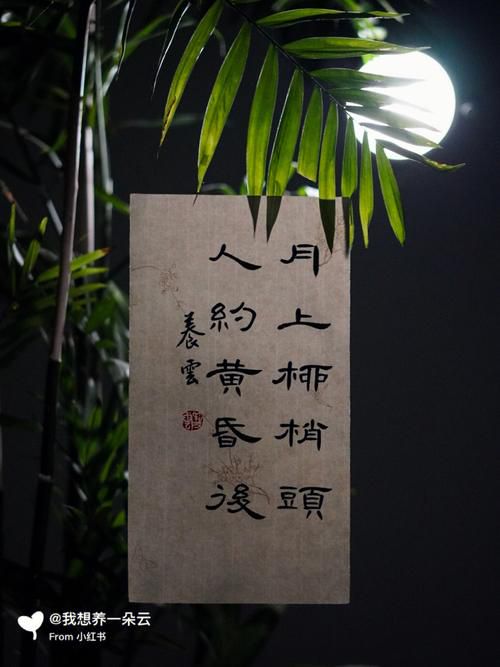 月上柳梢頭
人約黄昏後
養雲
@我想养一朵云
From 小红书